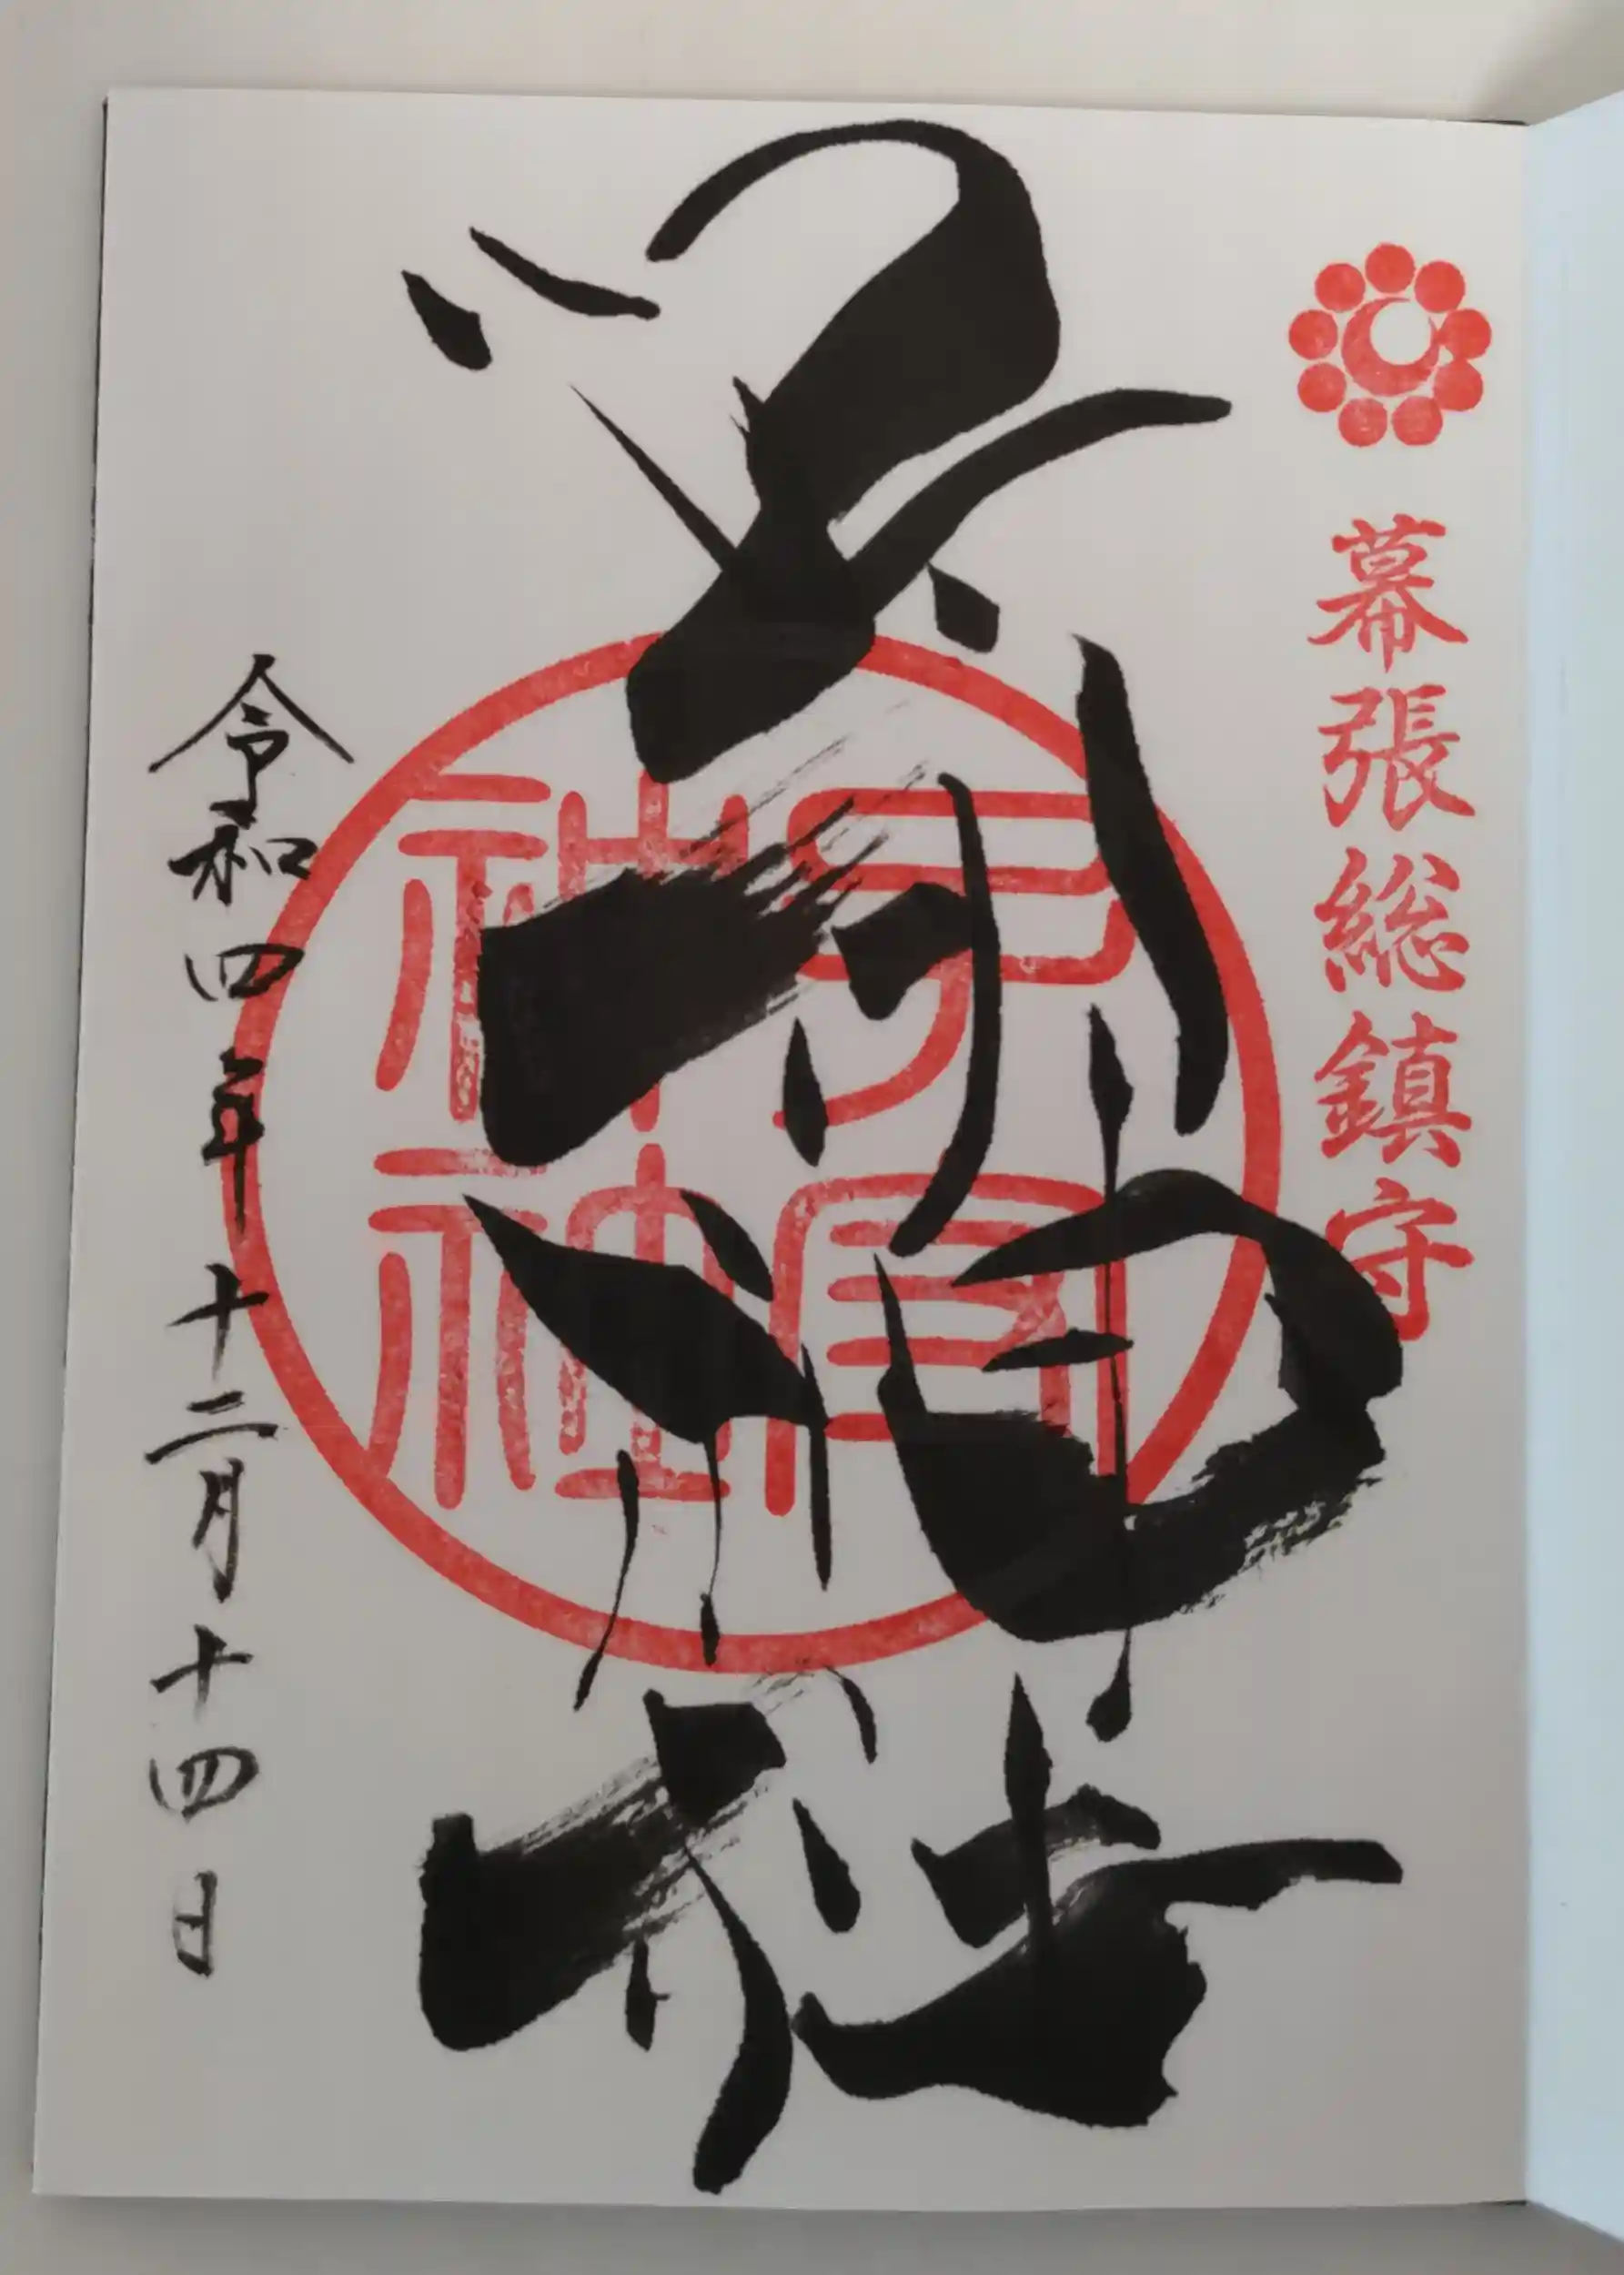 幕張総鎮守
子守神社
子守神社
令和四年十二月十四日